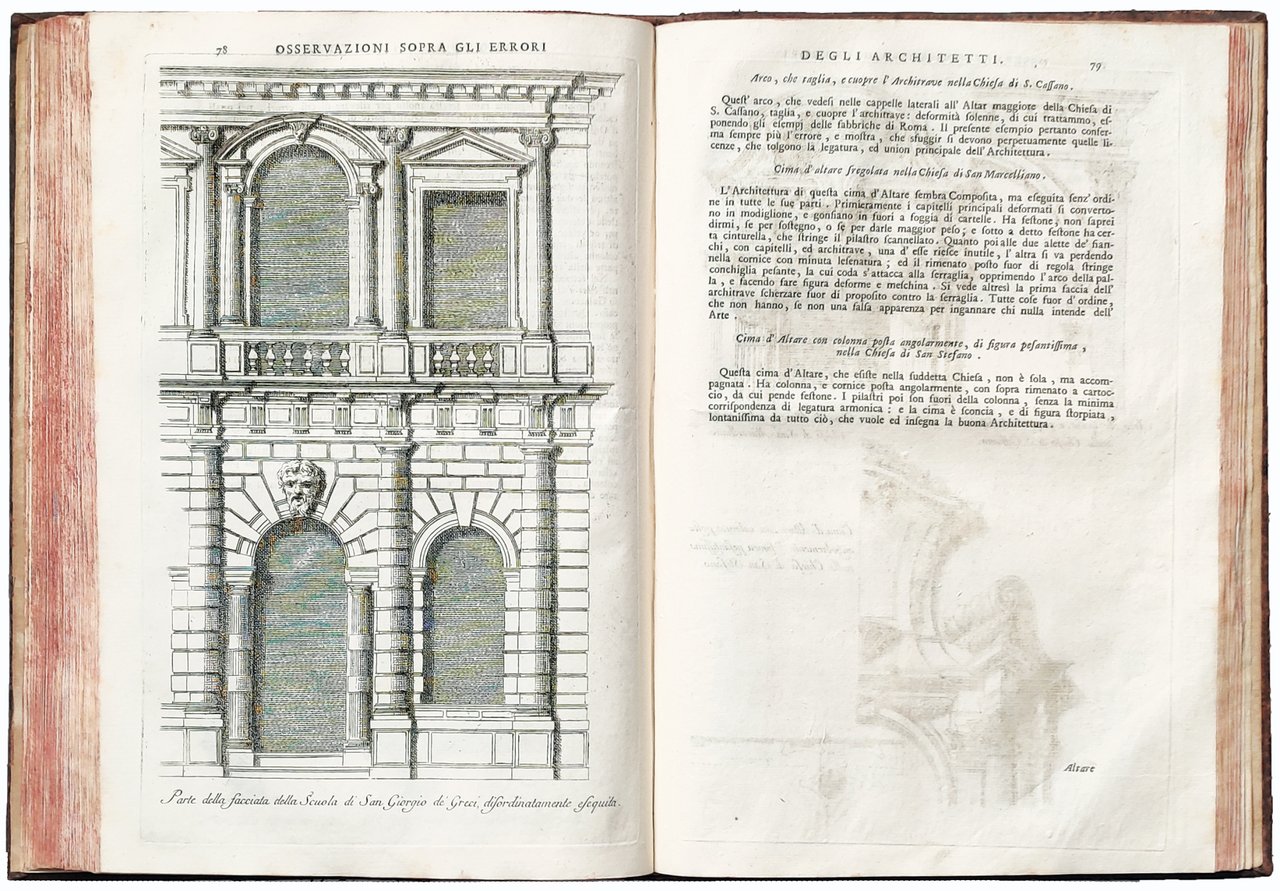 78
OSSERVAZIONI SOPRA GLI ERRORI
Parte della facciata della Scuola di San Giorgio de Greci, disordinatamente esequita.
DEGLI ARCHITETTI.
79
Arco, che taglia, e cuopre l'Architrave nella Chiesa di S. Cassano.
Quest' arco, che vedesi nelle cappelle laterali all' Altar maggiore della Chiesa di
S. Cassano, taglia, e cuopre l'architrave: deformità solenne, di cui trattammo, es-
ponendo gli esempj delle fabbriche di Roma. Il presente esempio pertanto confer-
ma sempre più l'errore, e mostra, che sfuggir si devono perpetuamente quelle li-
cenze, che tolgono la legatura, ed union principale dell'Architettura.
Cima d'altare sregolata nella Chiesa di San Marcelliano.
L'Architettura di questa cima d'Altare sembra Composita, ma eseguita senz' ordi-
ne in tutte le sue parti. Primieramente i capitelli principali deformati si converto-
no in modiglione, e gonfiano in fuori a foggia di cartelle. Ha festone, non saprei
dirmi, se per sostegno, o se per darle maggior peso; e sotto a detto festone ha cer-
ta cinturella, che stringe il pilastro scannellato. Quanto poi alle due alette de' fian-
chi, con capitelli, ed architrave, una d' esse riesce inutile, l' altra si va perdendo
nella cornice con minuta lesenatura; ed il rimenato posto fuor di regola stringe
conchiglia pesante, la cui coda s'attacca alla serraglia, opprimendo l'arco della pal-
la, e facendo fare figura deforme e meschina. Si vede altresì la prima faccia dell'
architrave scherzare fuor di proposito contro la serraglia. Tutte cose fuor d' ordine,
che non hanno, se non una falsa apparenza per ingannare chi nulla intende dell'
Arte.
Cima d' Altare con colonna posta angolarmente, di figura pesantissima,
nella Chiesa di San Stefano.
Questa cima d'Altare, che esiste nella suddetta Chiesa, non è sola, ma accom-
pagnata. Ha colonna, e cornice posta angolarmente, con sopra rimenato a cartoc-
cio, da cui pende festone. I pilastri poi son fuori della colonna, senza la minima
corrispondenza di legatura armonica: e la cima è sconcia, e di figura storpiata,
lontanissima da tutto ciò, che vuole ed insegna la buona Architettura.
Altare